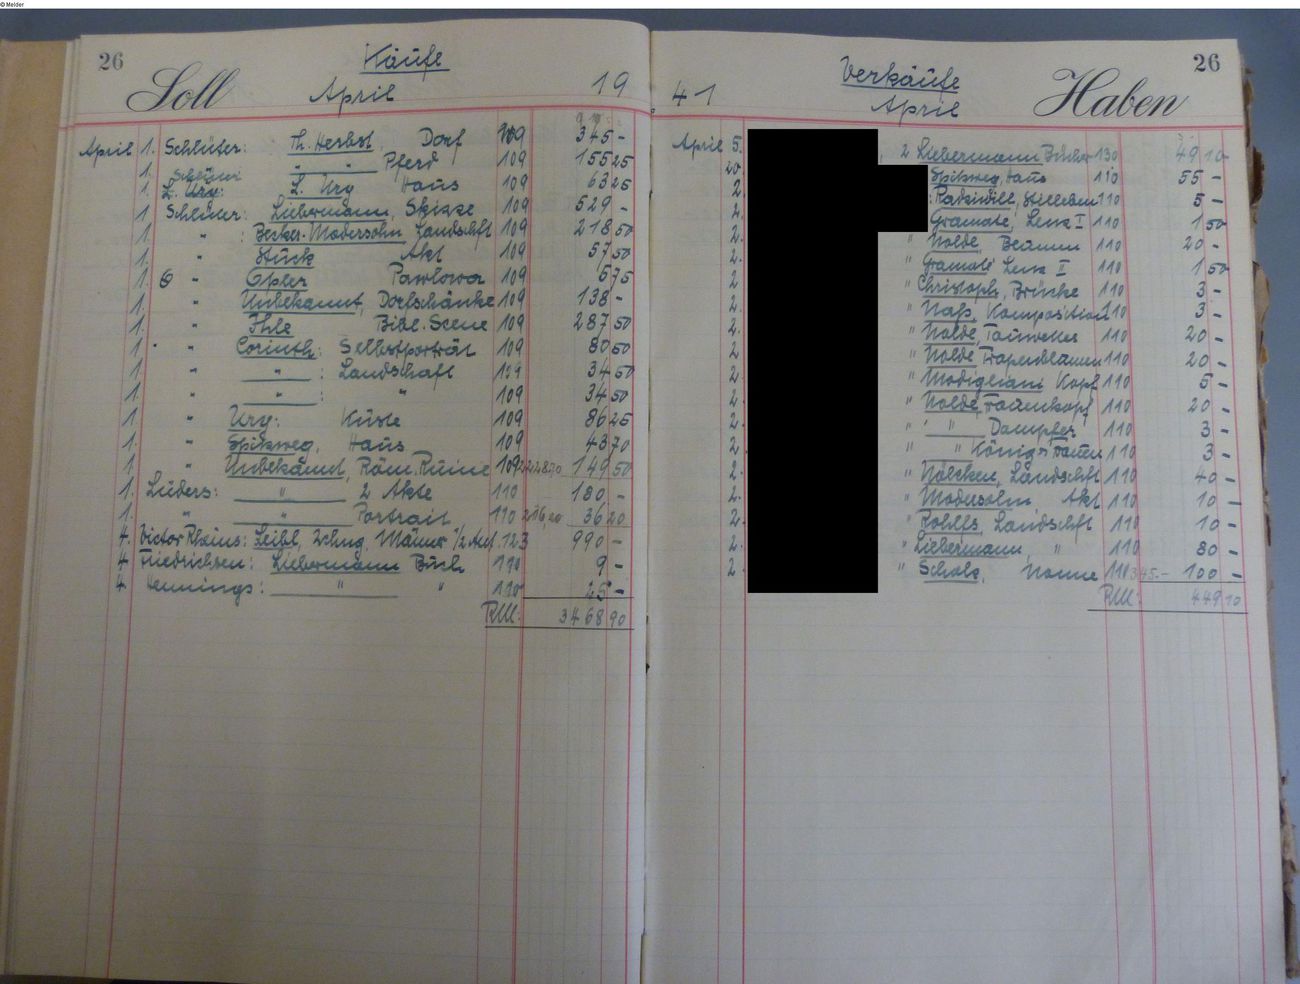 © Melder
26
Käufe
Soll April 19
April 1. Schlüter: Th. Herbst, Dorf 109 345 -
1. " " Pferd 109 155 25
1. L. Ury: L. Ury Haus 109 63 25
1. Schlüter: Liebermann, Skizze 109 529 -
1. " : Becker-Modersohn Landschft 109 218 50
1. " Stuck Akt 109 57 50
1. " Opler Pawlowa 109 5 75
1. " Unbekannt, Dorfschänke 109 138 -
1. " Ihle Bibl. Scene 109 287 50
1. " Corinth: Selbstporträt 109 80 50
1. " " : Landschaft 129 34 50
1. " " : " 109 34 50
1. " Ury: Küste 109 86 25
1. " Spitzweg, Haus 109 43 70
1. " Unbekannt, Röm. Ruine 109 149 50
1. Lüders: " 2 Akte 110 180 -
1. " " Portrait 110 216 20 36 20
4. Victor Rheins: Leibl, Zchng. Männer 123 990 -
4. Friedrichsen: Liebermann Buch 110 9 -
4. Hennings: " " 110 25 -
RM: 3468 90
26
Verkäufe
41 April Haben
April 5. , 2 Liebermann Bücher 130 49 10
20 Spitzweg, Haus 110 55 -
2. : 110 5 -
2. Gramaté, Lenz I 110 1 50
2. " Nolde, Beamm 110 20 -
2. " Gramaté Lenz II 110 1 50
2 " Christoph, Brücke 110 3 -
2. " Naß, Komposition 110 3 -
2. " Nolde, 110 20 -
2 " Nolde 110 20 -
2. " Modigliani Kopf 110 5 -
2. " Nolde, Frauenkopf 110 20 -
2 " " Dampfer 110 3 -
2 " " 110 3 -
2. " Nölcken, Landschft 110 40 -
2. " Modersohn Akt 110 10 -
2. " Rohlfs, Landschft 110 10 -
2. " Liebermann " 110 80 -
2. " Scholz, Nonne 110 345.- 100 -
RM: 449 10